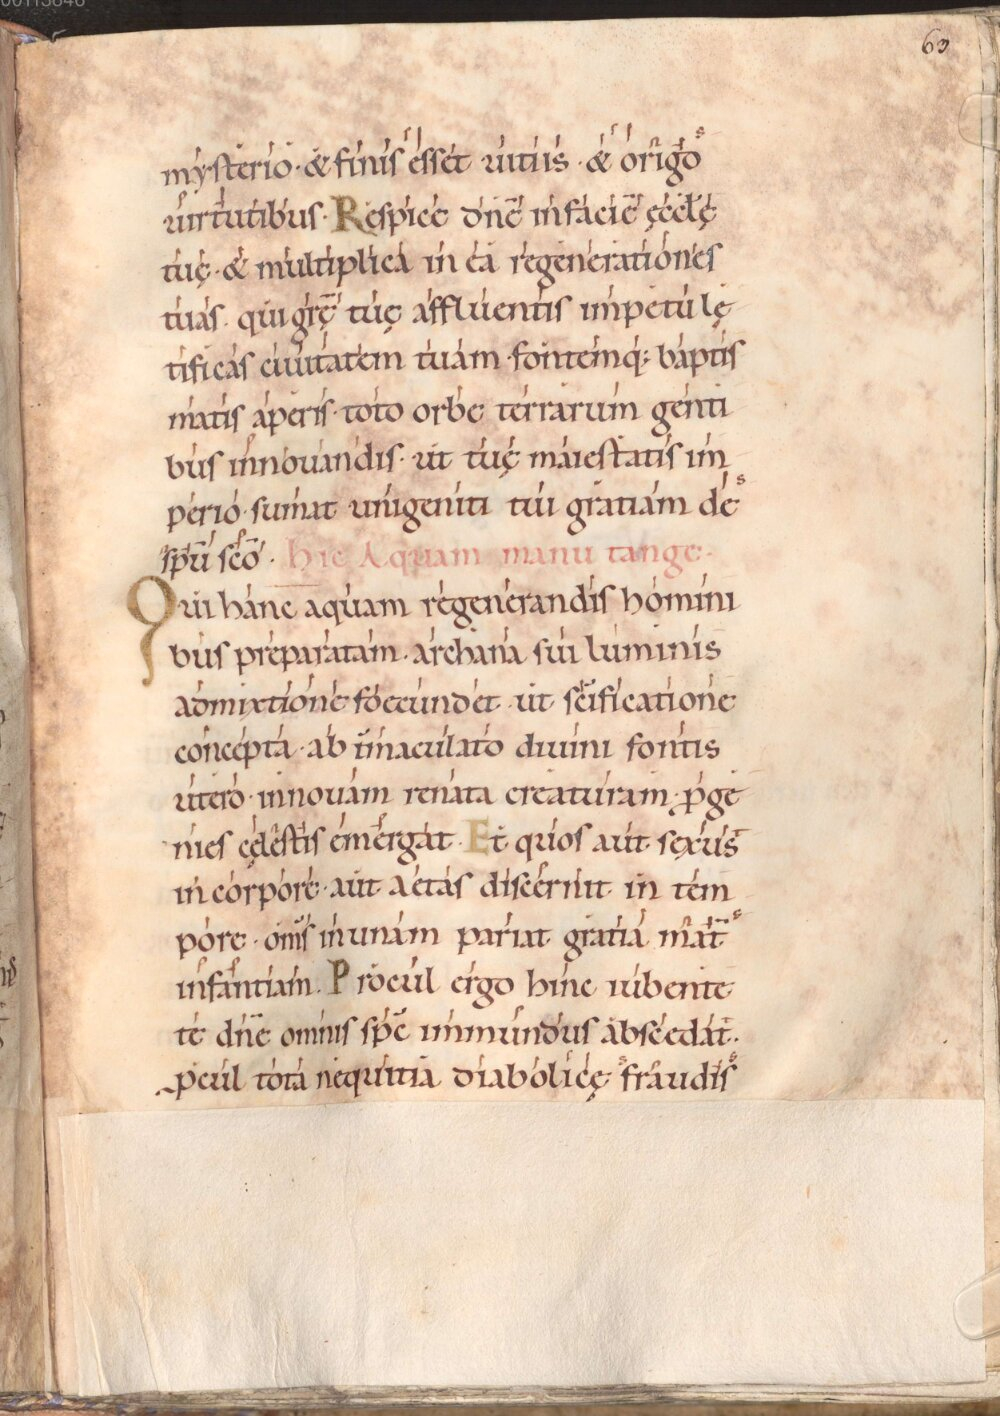 60
mysterio · & finis esset uitiis · & origo
uirtutibus · Respice dñe in faciē ęcclę
tuę · & multiplica in ea regenerationes
tuas · qui grę̄ tuę affluentis impetu lę
tificas ciuitatem tuam · fontemq; baptis
matis aperis · toto orbe terrarum genti
bus innouandis · ut tuę maiestatis im
perio · sumat unigeniti tui gratiam de
spū scō · hic Aquam manu tange ·
Qui hanc aquam regenerandis homini
bus preparatam · archana sui luminis
admixtione foecundet · ut scīficatione
concepta · ab īmaculato diuini fontis
utero · in nouam renata creaturam · ꝓge
nies cęlestis emergat · Et quos aut sexus
in corpore · aut aetas discernit in tem
pore · om̄s in unam pariat gratia mat̄
infantiam · Procul ergo hinc iubente
te dñe omnis spc̄ inmundus abscedat ·
ꝓcul tota nequitia diabolicę fraudis